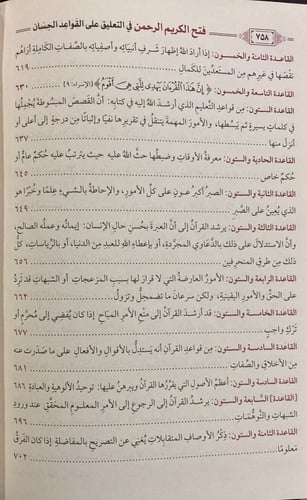 ٧٥٨ فتح الكريم الرحمن في التعليق على القواعد الحسان
القاعدة الثامنة والخمسون: إذا أراد اللهُ إظهار شرفِ أنبيائه وأصفيائه بالصِّفات الكاملة أراهم
نقصها في غيرهم من المستعدِّين للكمال ٦١٩
القاعدة التاسعة والخمسون: ﴿إِنَّ هَٰذَا الْقُرْآنَ يَهْدِي لِلَّتِي هِيَ أَقْوَمُ﴾ (الإسراء: ٩) ٦٣٠
القاعدة الستون: من قواعد التعليم الذي أرشد اللهُ إليه في كتابه: أنَّ القصص المبسوطة يُجملُها
في كلماتٍ يسيرةٍ ثم يبسُطها، والأمور المهمة يتنقل في تقريرها نفيًا وإثباتًا من درجةٍ إلى أعلى أو
أنزل منها ٦٣٧
القاعدة الحادية والستون: معرفةُ الأوقاتِ وضبطُها حثَّ اللهُ عليه حيث يترتب عليه حُكمٌ عامٌّ أو
حكمٌ خاص ٦٤٥
القاعدة الثانية والستون: الصبرُ أكبر عونٍ على كلِّ الأمور، والإحاطةُ بالشيءِ علمًا وخُبرًا هو
الذي يُعينُ على الصَّبر ٦٤٩
القاعدة الثالثة والستون: يرشد القرآن إلى أنَّ العبرة بحُسنِ حالِ الإنسان: إيمانُه وعملُه الصالح،
وأنَّ الاستدلال على ذلك بالدَّعاوي المجرَّدة، أو بإعطاءِ اللهِ للعبدِ من الدنيا، أو بالرِّياسات، كلُّ
ذلك من طرقِ المنحرفين ٦٥٦
القاعدة الرابعة والستون: الأمورُ العارضةُ التي لا قرارَ لها بسببِ المزعجاتِ أو الشبهاتِ قد تَرِدُ
على الحقِّ والأمورِ اليقينيةِ، ولكن سرعان ما تضمحلُّ وتزولُ ٦٦٢
القاعدة الخامسة والستون: قد أرشدَ القرآنُ إلى منعِ الأمرِ المباحِ إذا كان يُفضي إلى مُحرَّمٍ أو
تركِ واجبٍ ٦٧٧
القاعدة السادسة والستون: من قواعد القرآن أنه يَستدِلُّ بالأقوالِ والأفعالِ على ما صَدَرَت عنه
من الأخلاقِ والصِّفات ٦٨١
القاعدة السادسة والستون: أعظمُ الأصولِ التي يقرِّرُها القرآنُ ويبرهنُ عليها: توحيدُ الألوهيةِ والعبادة ٦٨٦
القاعدة [السابعة] والستون: يرشدُ القرآنُ إلى الرجوعِ إلى الأمرِ المعلومِ المحقَّقِ عند ورودِ
الشبهاتِ والتَّوهُّمات ٦٩٦
القاعدة الثامنة والستون: ذِكرُ الأوصافِ المتقابلاتِ يُغني عن التصريحِ بالمفاضلةِ إذا كان الفَرقُ
معلومًا ٧٠٢